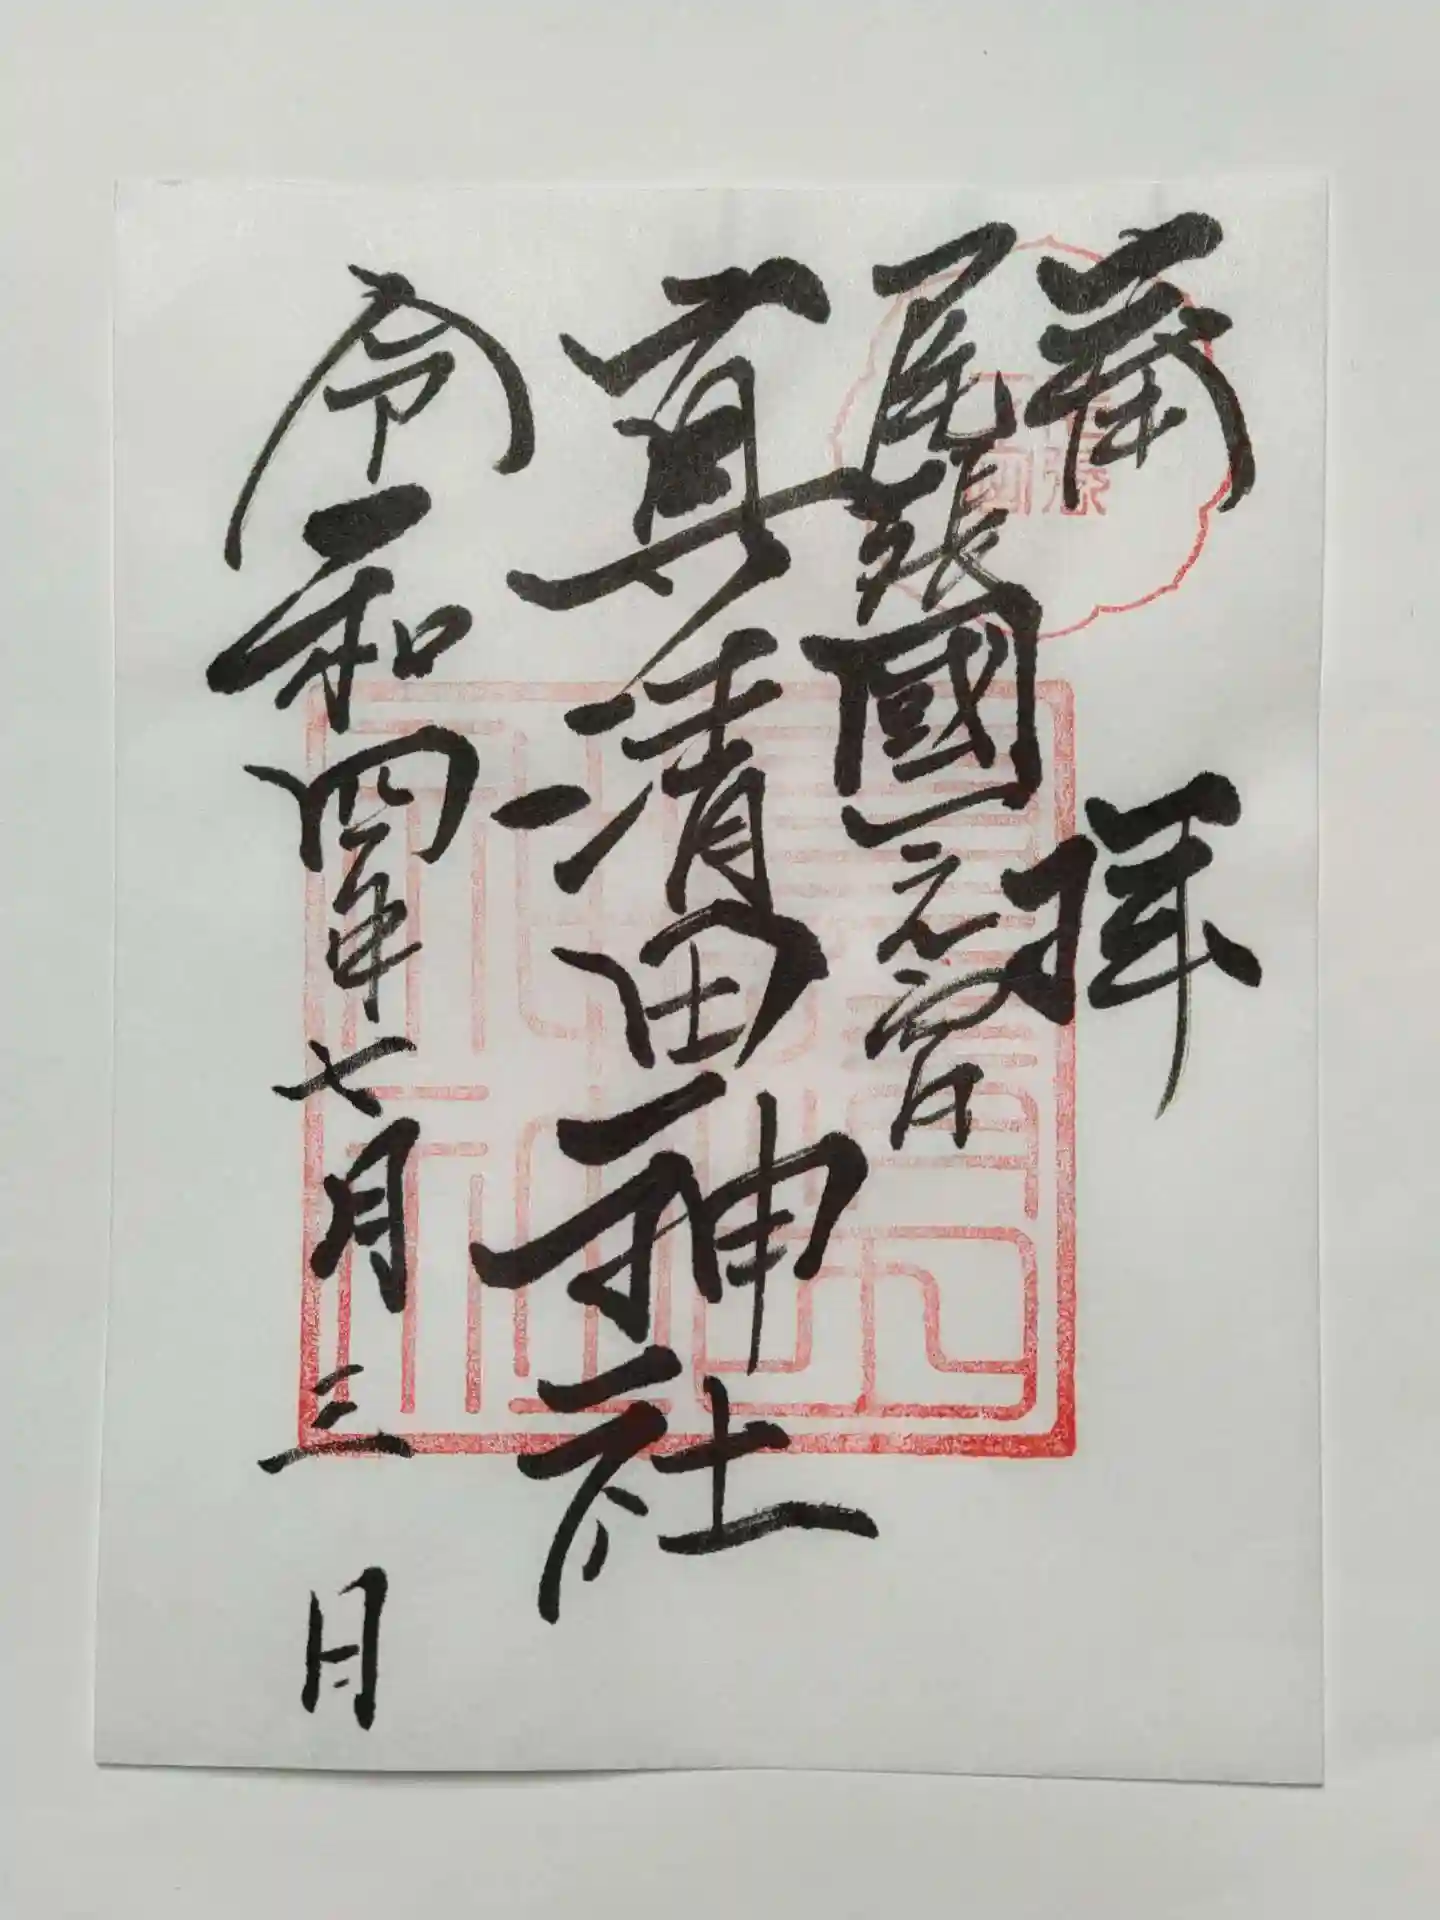 奉拝
尾張國一之宮
真清田神社
令和四年七月三日